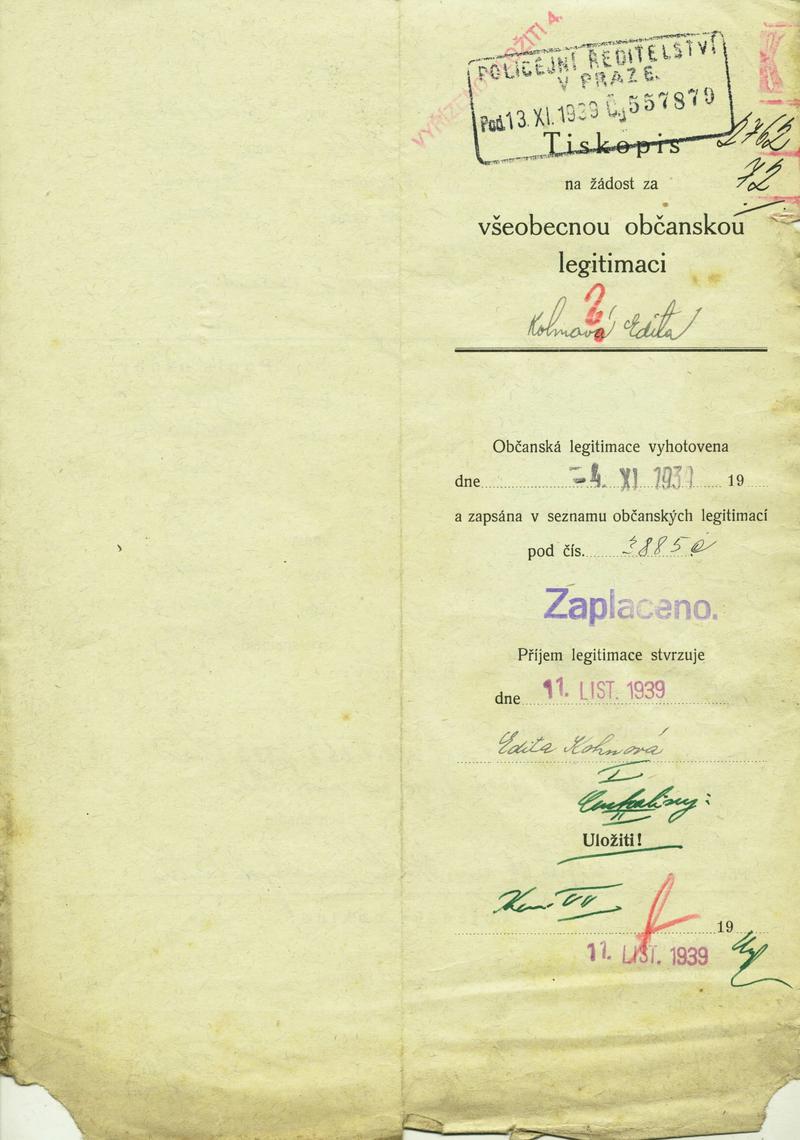 POLICEJNÍ ŘEDITELSTVÍ
V PRAZE.
Pod. 13. XI. 1939 Čj 557879
K
Tiskopis
2762
72
na žádost za
všeobecnou občanskou
legitimaci
Kohnová Edita
Občanská legitimace vyhotovena
dne -4. XI 1939 19
a zapsána v seznamu občanských legitimací
pod čís.
Zaplaceno.
Příjem legitimace stvrzuje
dne 11. LIST. 1939
Edita Kohnová
I
Uložiti!
19
11. LIST. 1939